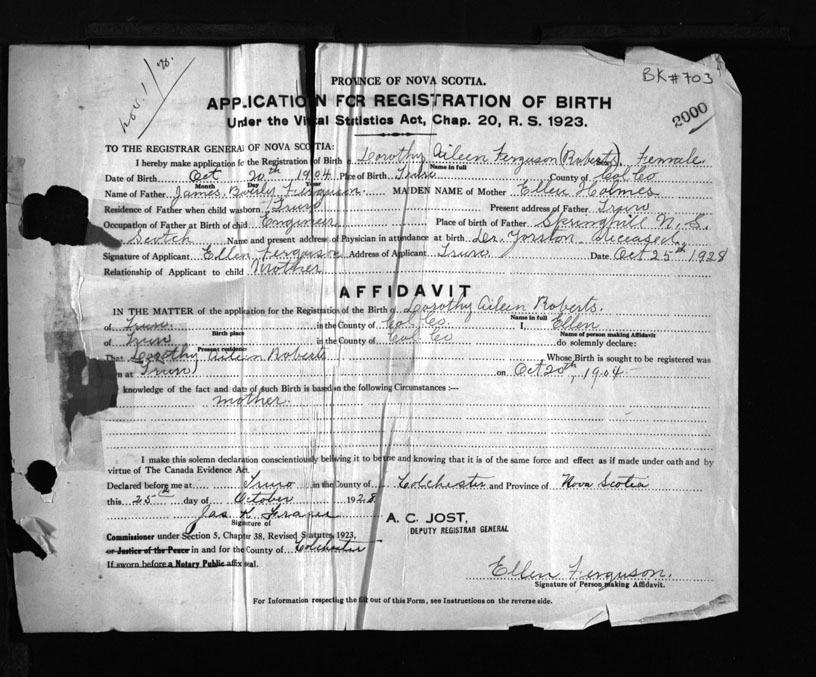 Nov. 1/28.
BK#703
2000
PROVINCE OF NOVA SCOTIA.
APPLICATION FOR REGISTRATION OF BIRTH
Under the Vital Statistics Act, Chap. 20, R. S. 1923.
TO THE REGISTRAR GENERAL OF NOVA SCOTIA:
I hereby make application for the Registration of Birth of Dorothy Aileen Ferguson (Roberts). Female
Name in full
Date of Birth Oct 20th 1904 Place of Birth Truro County of Col Co
Month Day Year
Name of Father James Ferguson. MAIDEN NAME of Mother Ellen Holmes
Residence of Father when child was born Truro Present address of Father Truro
Occupation of Father at Birth of child Engineer Place of birth of Father Springhill N. S.
Scotch Name and present address of Physician in attendance at birth Dr. Yorston deceased
Signature of Applicant Ellen Ferguson Address of Applicant Truro Date Oct 25th 1928
Relationship of Applicant to child Mother
AFFIDAVIT
IN THE MATTER of the application for the Registration of the Birth of Dorothy Aileen Roberts.
Name in full
of Truro in the County of Col Co I, Ellen
Birth place Name of person making Affidavit
of Truro in the County of Col Co do solemnly declare:
Present residence
That Dorothy Aileen Roberts Whose Birth is sought to be registered was
at Truro on Oct 20th, 1904
knowledge of the fact and date of such Birth is based on the following Circumstances:—
mother.
I make this solemn declaration conscientiously believing it to be true and knowing that it is of the same force and effect as if made under oath and by
virtue of The Canada Evidence Act.
Declared before me at Truro in the County of Colchester and Province of Nova Scotia
this 25th day of October 1928
Jas K Fraser
Signature of
A. C. JOST,
DEPUTY REGISTRAR GENERAL
Commissioner under Section 5, Chapter 38, Revised Statutes, 1923,
or Justice of the Peace in and for the County of Colchester
If sworn before a Notary Public affix seal.
Ellen Ferguson.
Signature of Person making Affidavit.
For Information respecting the fill out of this Form, see Instructions on the reverse side.